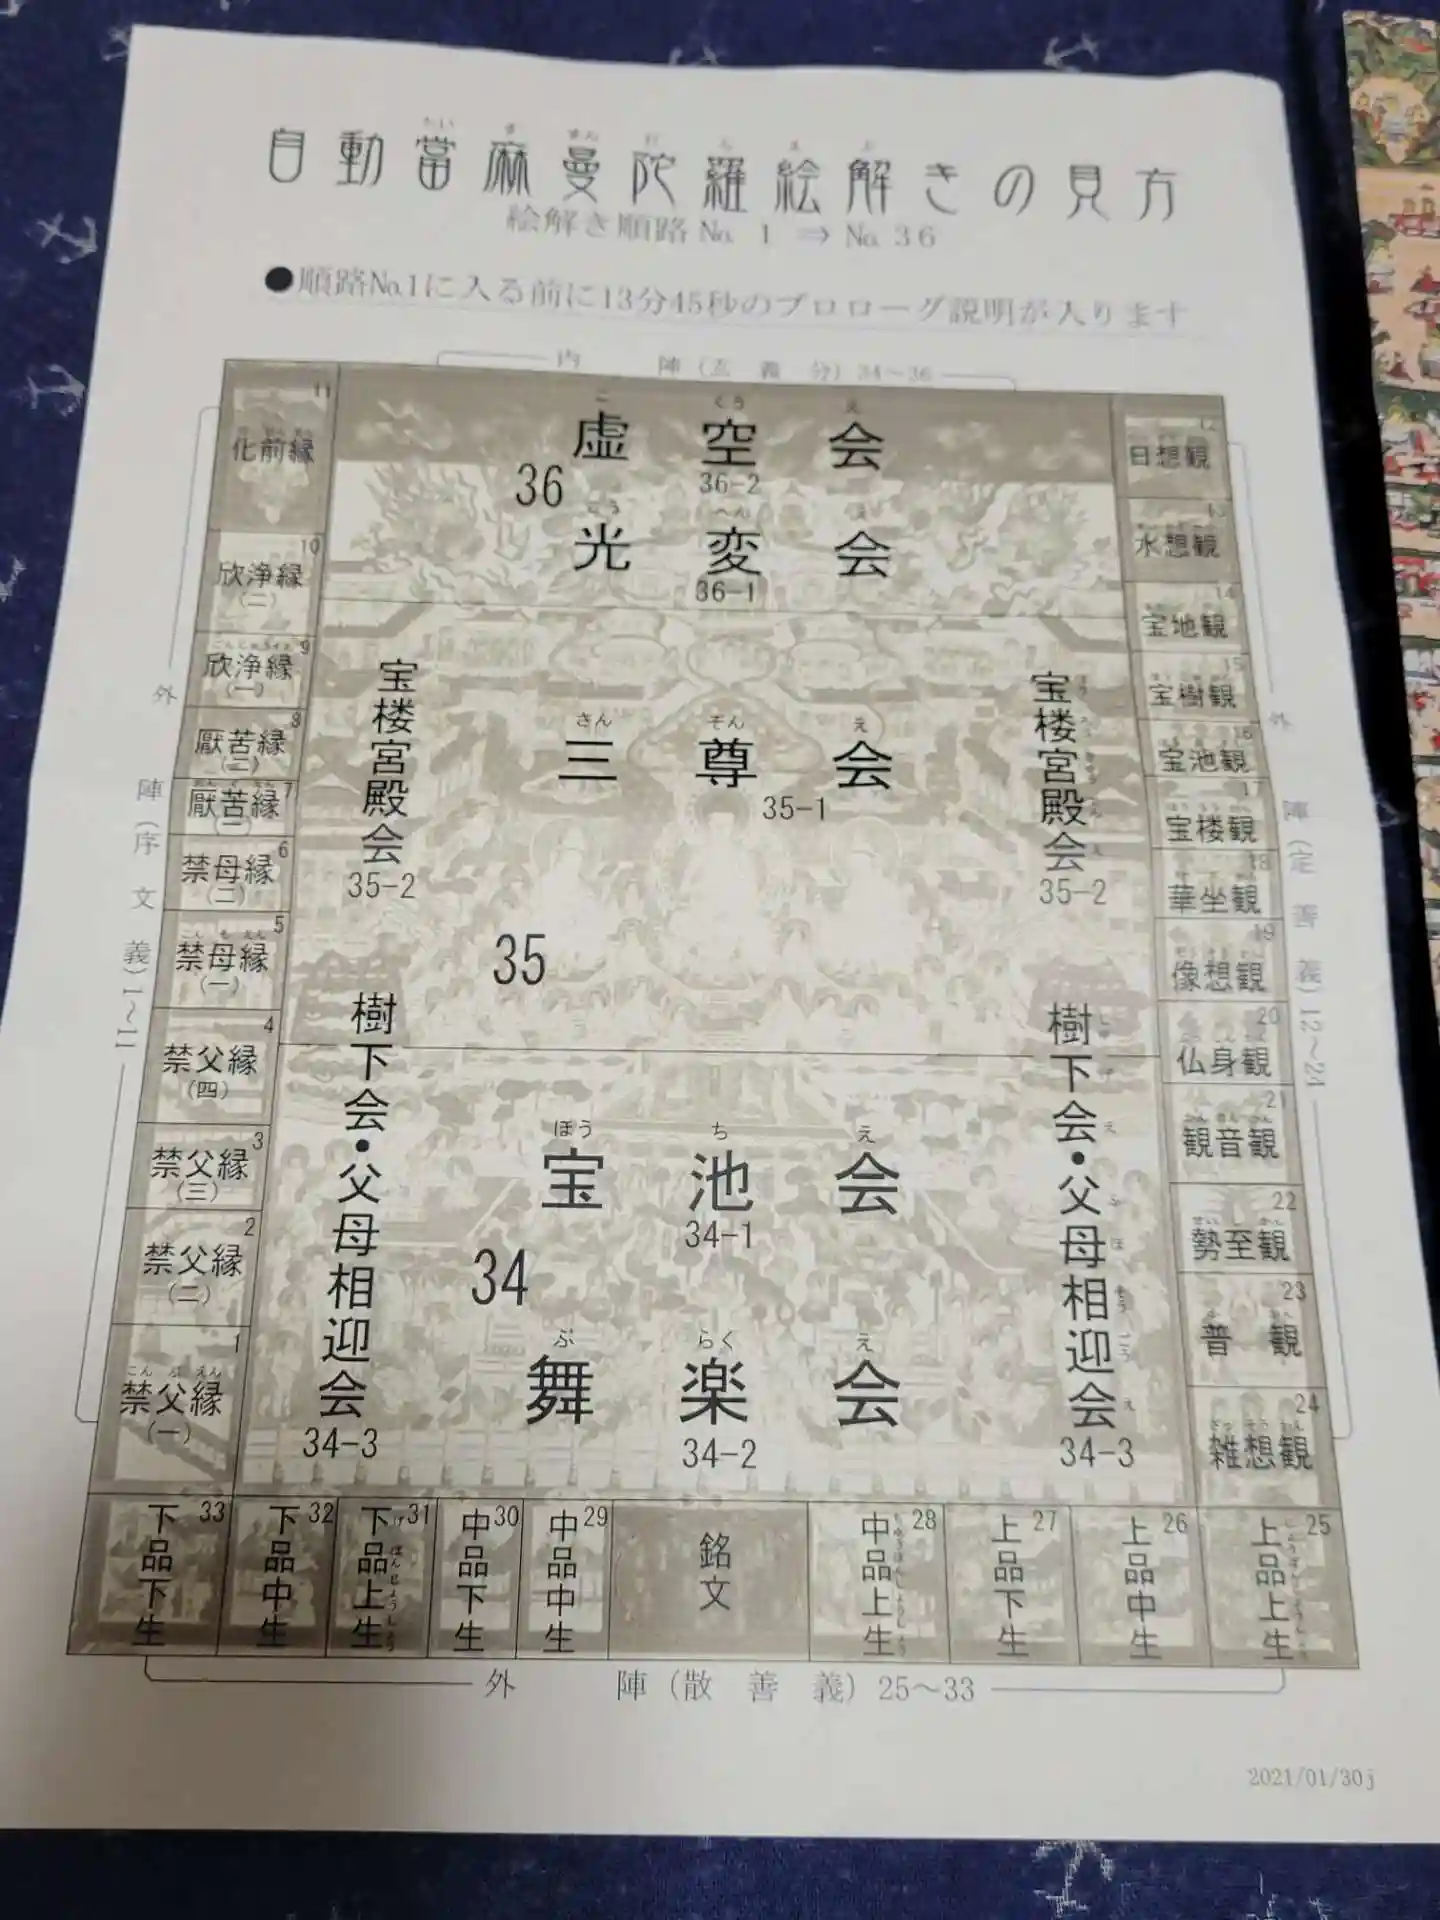 自動當麻曼陀羅絵解きの見方
絵解き順路 No. 1 ⇒ No. 36
●順路No.1に入る前に13分45秒のプロローグ説明が入ります
内 陣(玄 義 分) 34〜36
虚空会
36-2
36
光変会
36-1
宝楼宮殿会
35-2
三尊会
さん ぞん え
35-1
宝楼宮殿会
35-2
35
樹下会・父母相迎会
34-3
宝池会
ほう ち え
34-1
34
舞楽会
ぶ らく え
34-2
樹下会・父母相迎会
34-3
外 陣(序 文 義)1〜11
11
化前縁
10
欣浄縁
(二)
9
欣浄縁
(一)
8
厭苦縁
(二)
7
厭苦縁
(一)
6
禁母縁
(二)
5
禁母縁
(一)
4
禁父縁
(四)
3
禁父縁
(三)
2
禁父縁
(二)
1
こん ぶ えん
禁父縁
(一)
外 陣(定 善 義)12〜24
12
日想観
13
水想観
14
宝地観
15
宝樹観
16
宝池観
17
宝楼観
18
華坐観
19
像想観
20
仏身観
21
観音観
22
勢至観
23
普 観
24
雑想観
33
下品下生
32
下品中生
31
下品上生
30
中品下生
29
中品中生
銘文
28
中品上生
27
上品下生
26
上品中生
25
上品上生
外 陣(散 善 義)25〜33
2021/01/30j